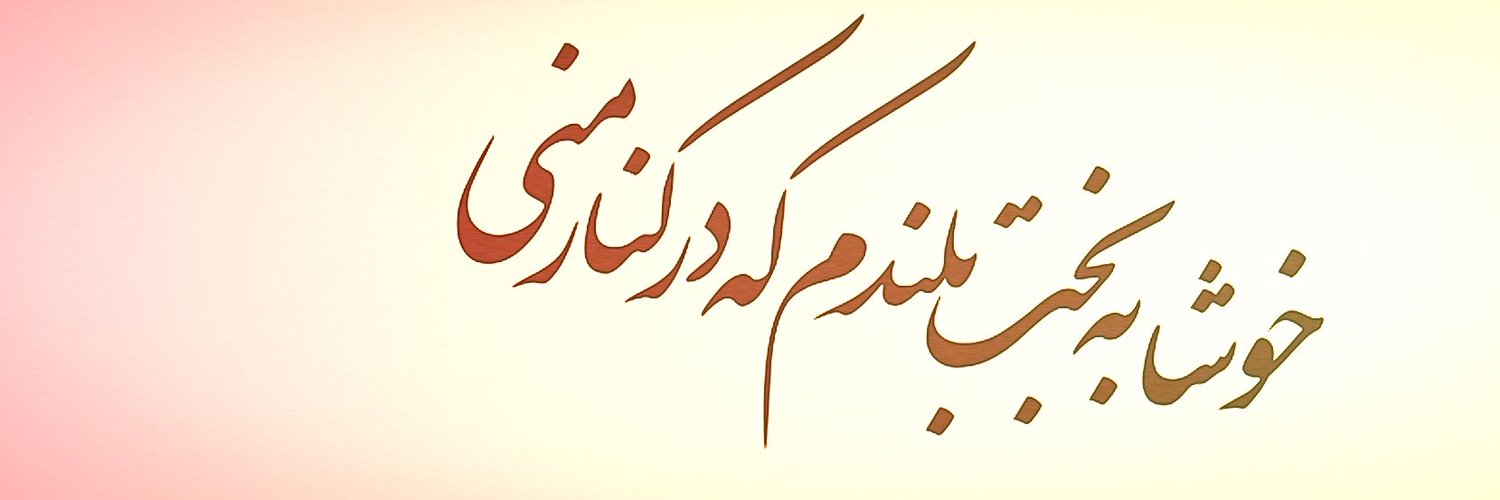 خوشا به بخت بلندم که در کنار منی